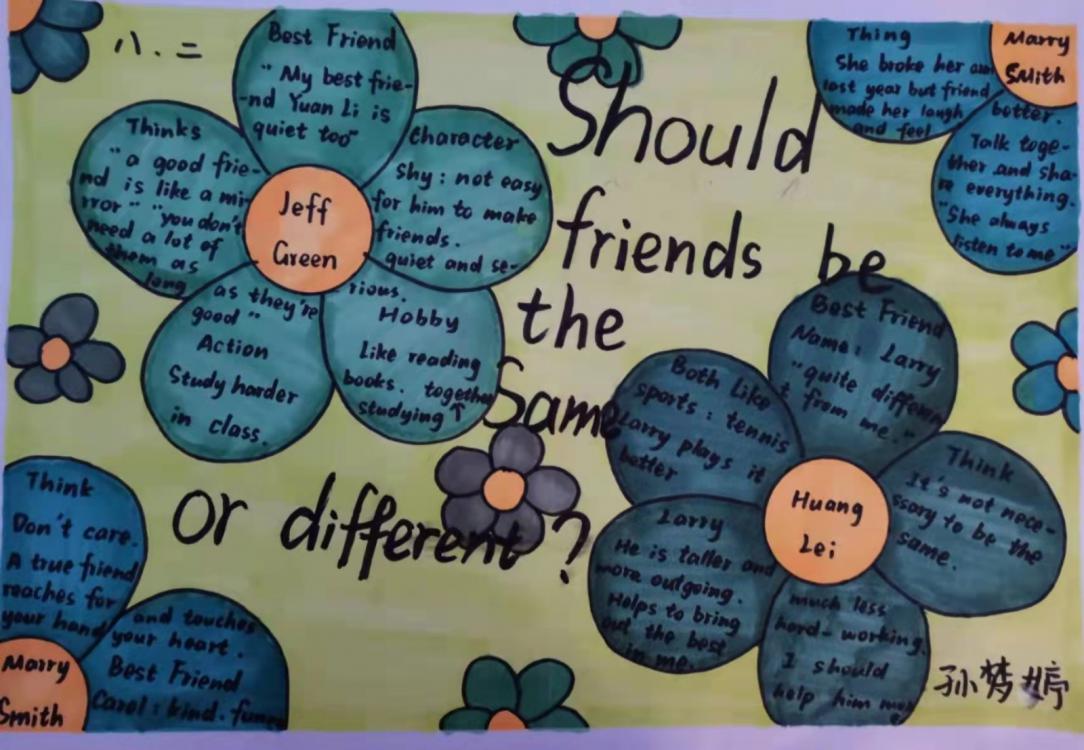 八.二
Best Friend
"My best frie-
-nd Yuan Li is
quiet too"
Thinks
"a good frie-
nd is like a mi-
rror" "you don't
need a lot of
them as
long
as they're
good"
Action
Study harder
in class.
Character
Shy: not easy
for him to make
friends.
quiet and se-
rious.
Hobby
Like reading
books. together
studying ↑
Jeff
Green
Should
friends be
the
Same
or different?
Thing
She broke her arm
last year but friend
made her laugh
and feel
better.
Talk toge-
ther and sha-
re everything.
"She always
listen to me"
Marry
Smith
Think
Don't care.
A true friend
reaches for
your hand
and touches
your heart.
Best Friend
Carol: kind. funny
Marry
Smith
Best Friend
Name: Larry
"quite differen
t from me."
Both Like
sports: tennis
Larry plays it
better
Think
It's not nece-
ssary to be the
same.
Larry
He is taller and
more outgoing.
Helps to bring
out the best
in me.
much less
hard-working.
I should
help him
Huang
Lei
孙梦婷